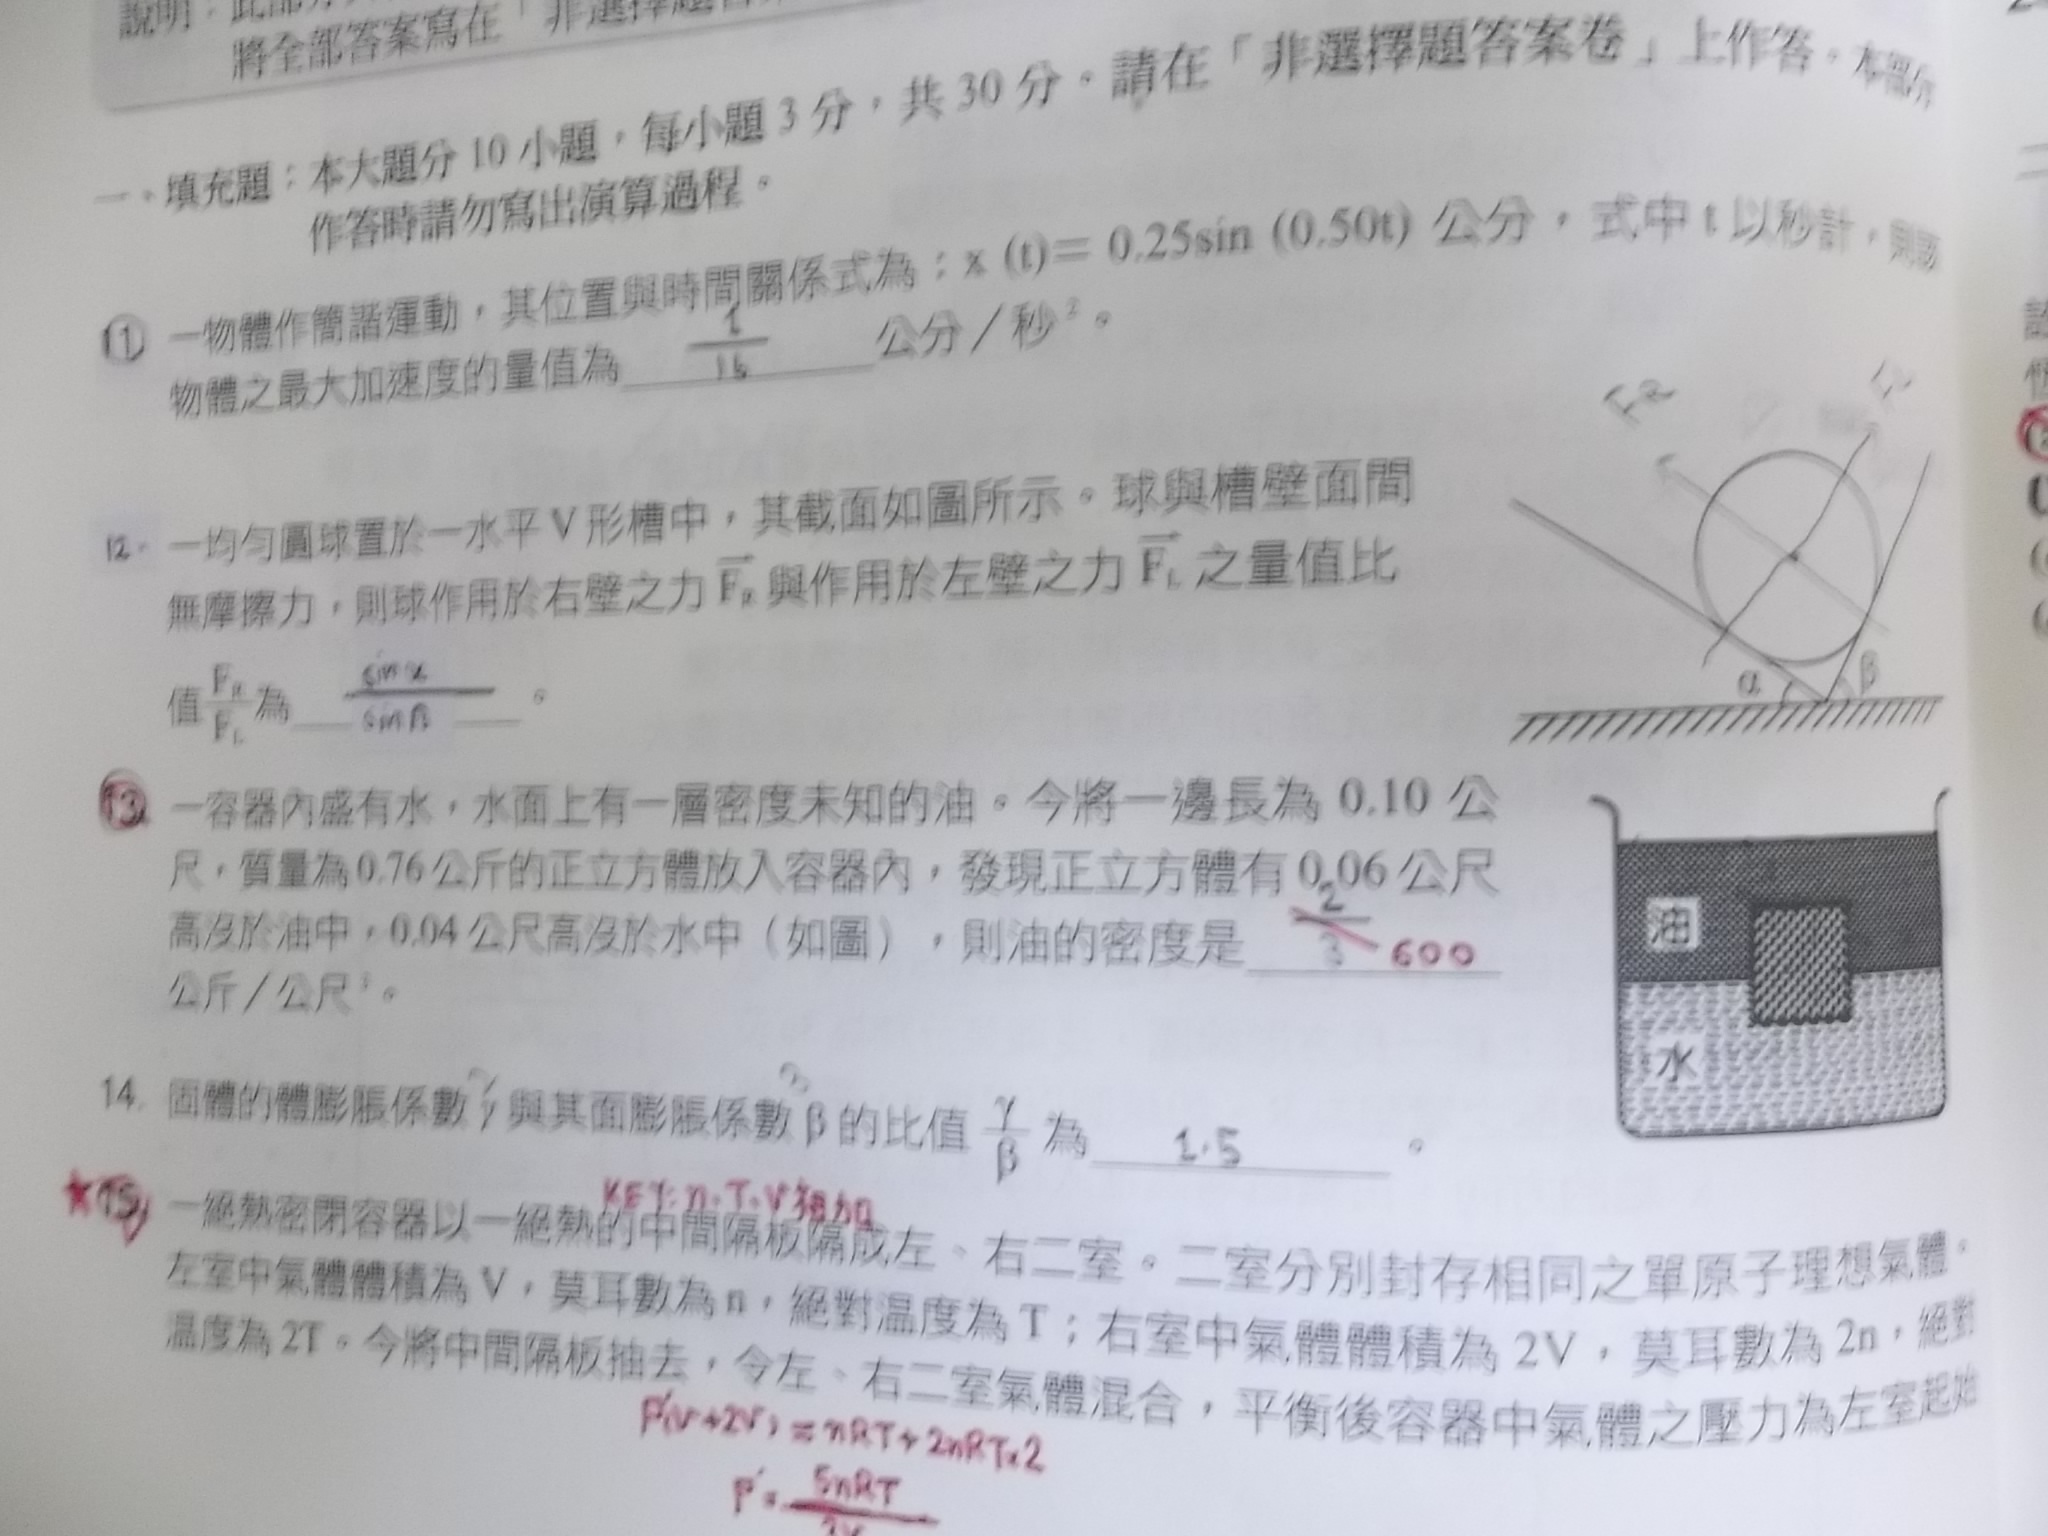 說明：此部分
將全部答案寫在「非選擇題答案
一、填充題：本大題分 10 小題，每小題 3 分，共 30 分。請在「非選擇題答案卷」上作答。本部分
作答時請勿寫出演算過程。
11 一物體作簡諧運動，其位置與時間關係式為：x (t)＝ 0.25sin (0.50t) 公分，式中 t 以秒計，則該
物體之最大加速度的量值為 1/16 公分／秒²。
12. 一均勻圓球置於一水平 V 形槽中，其截面如圖所示。球與槽壁面間
無摩擦力，則球作用於右壁之力 F⃗R 與作用於左壁之力 F⃗L 之量值比
值 FR/FL 為 sinα/sinβ 。
FR
α β
13. 一容器內盛有水，水面上有一層密度未知的油。今將一邊長為 0.10 公
尺，質量為 0.76 公斤的正立方體放入容器內，發現正立方體有 0.06 公尺
高沒於油中，0.04 公尺高沒於水中（如圖），則油的密度是 2/3 600
公斤／公尺³。
油
水
14. 固體的體膨脹係數 γ 與其面膨脹係數 β 的比值 γ/β 為 1.5 。
3
★15. 一絕熱密閉容器以一絕熱的中間隔板隔成左、右二室。二室分別封存相同之單原子理想氣體。
KEY: n、T、V 相加
左室中氣體體積為 V，莫耳數為 n，絕對溫度為 T；右室中氣體體積為 2V，莫耳數為 2n，絕對
溫度為 2T。今將中間隔板抽去，令左、右二室氣體混合，平衡後容器中氣體之壓力為左室起始
P'(V+2V) = nRT + 2nRT×2
P' = 5nRT/3V